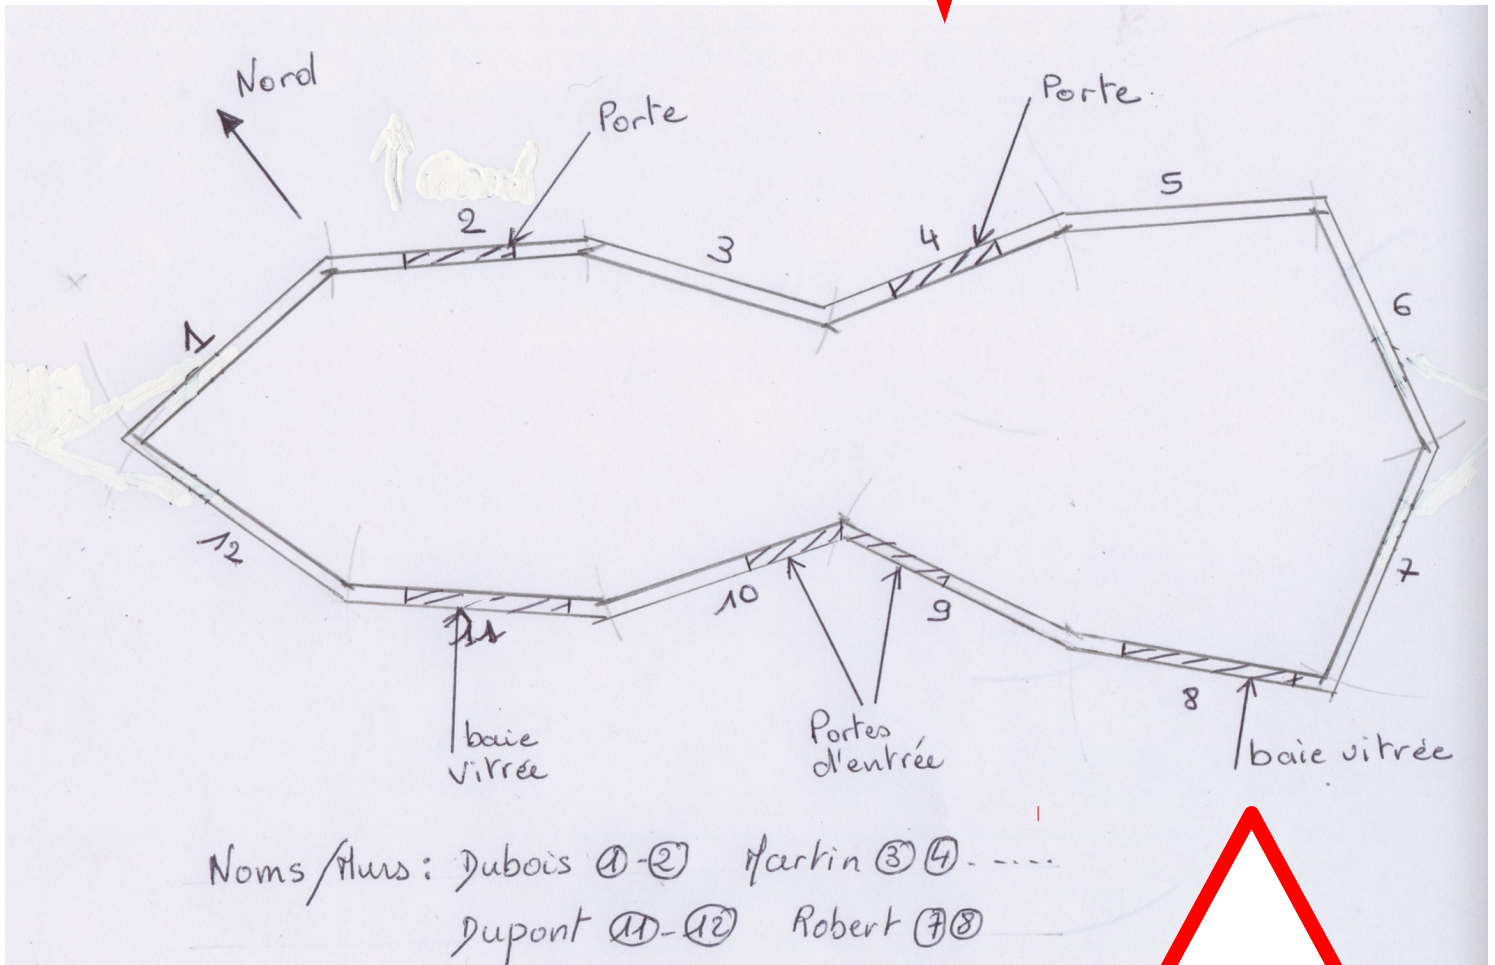 Nord
Porte
Porte.
1
2
3
4
5
6
7
8
9
10
11
12
baie
vitrée
Portes
d'entrée
baie vitrée
Noms/Murs: Dubois ①-② Martin ③④.-....
Dupont ⑪-⑫ Robert ⑦⑧